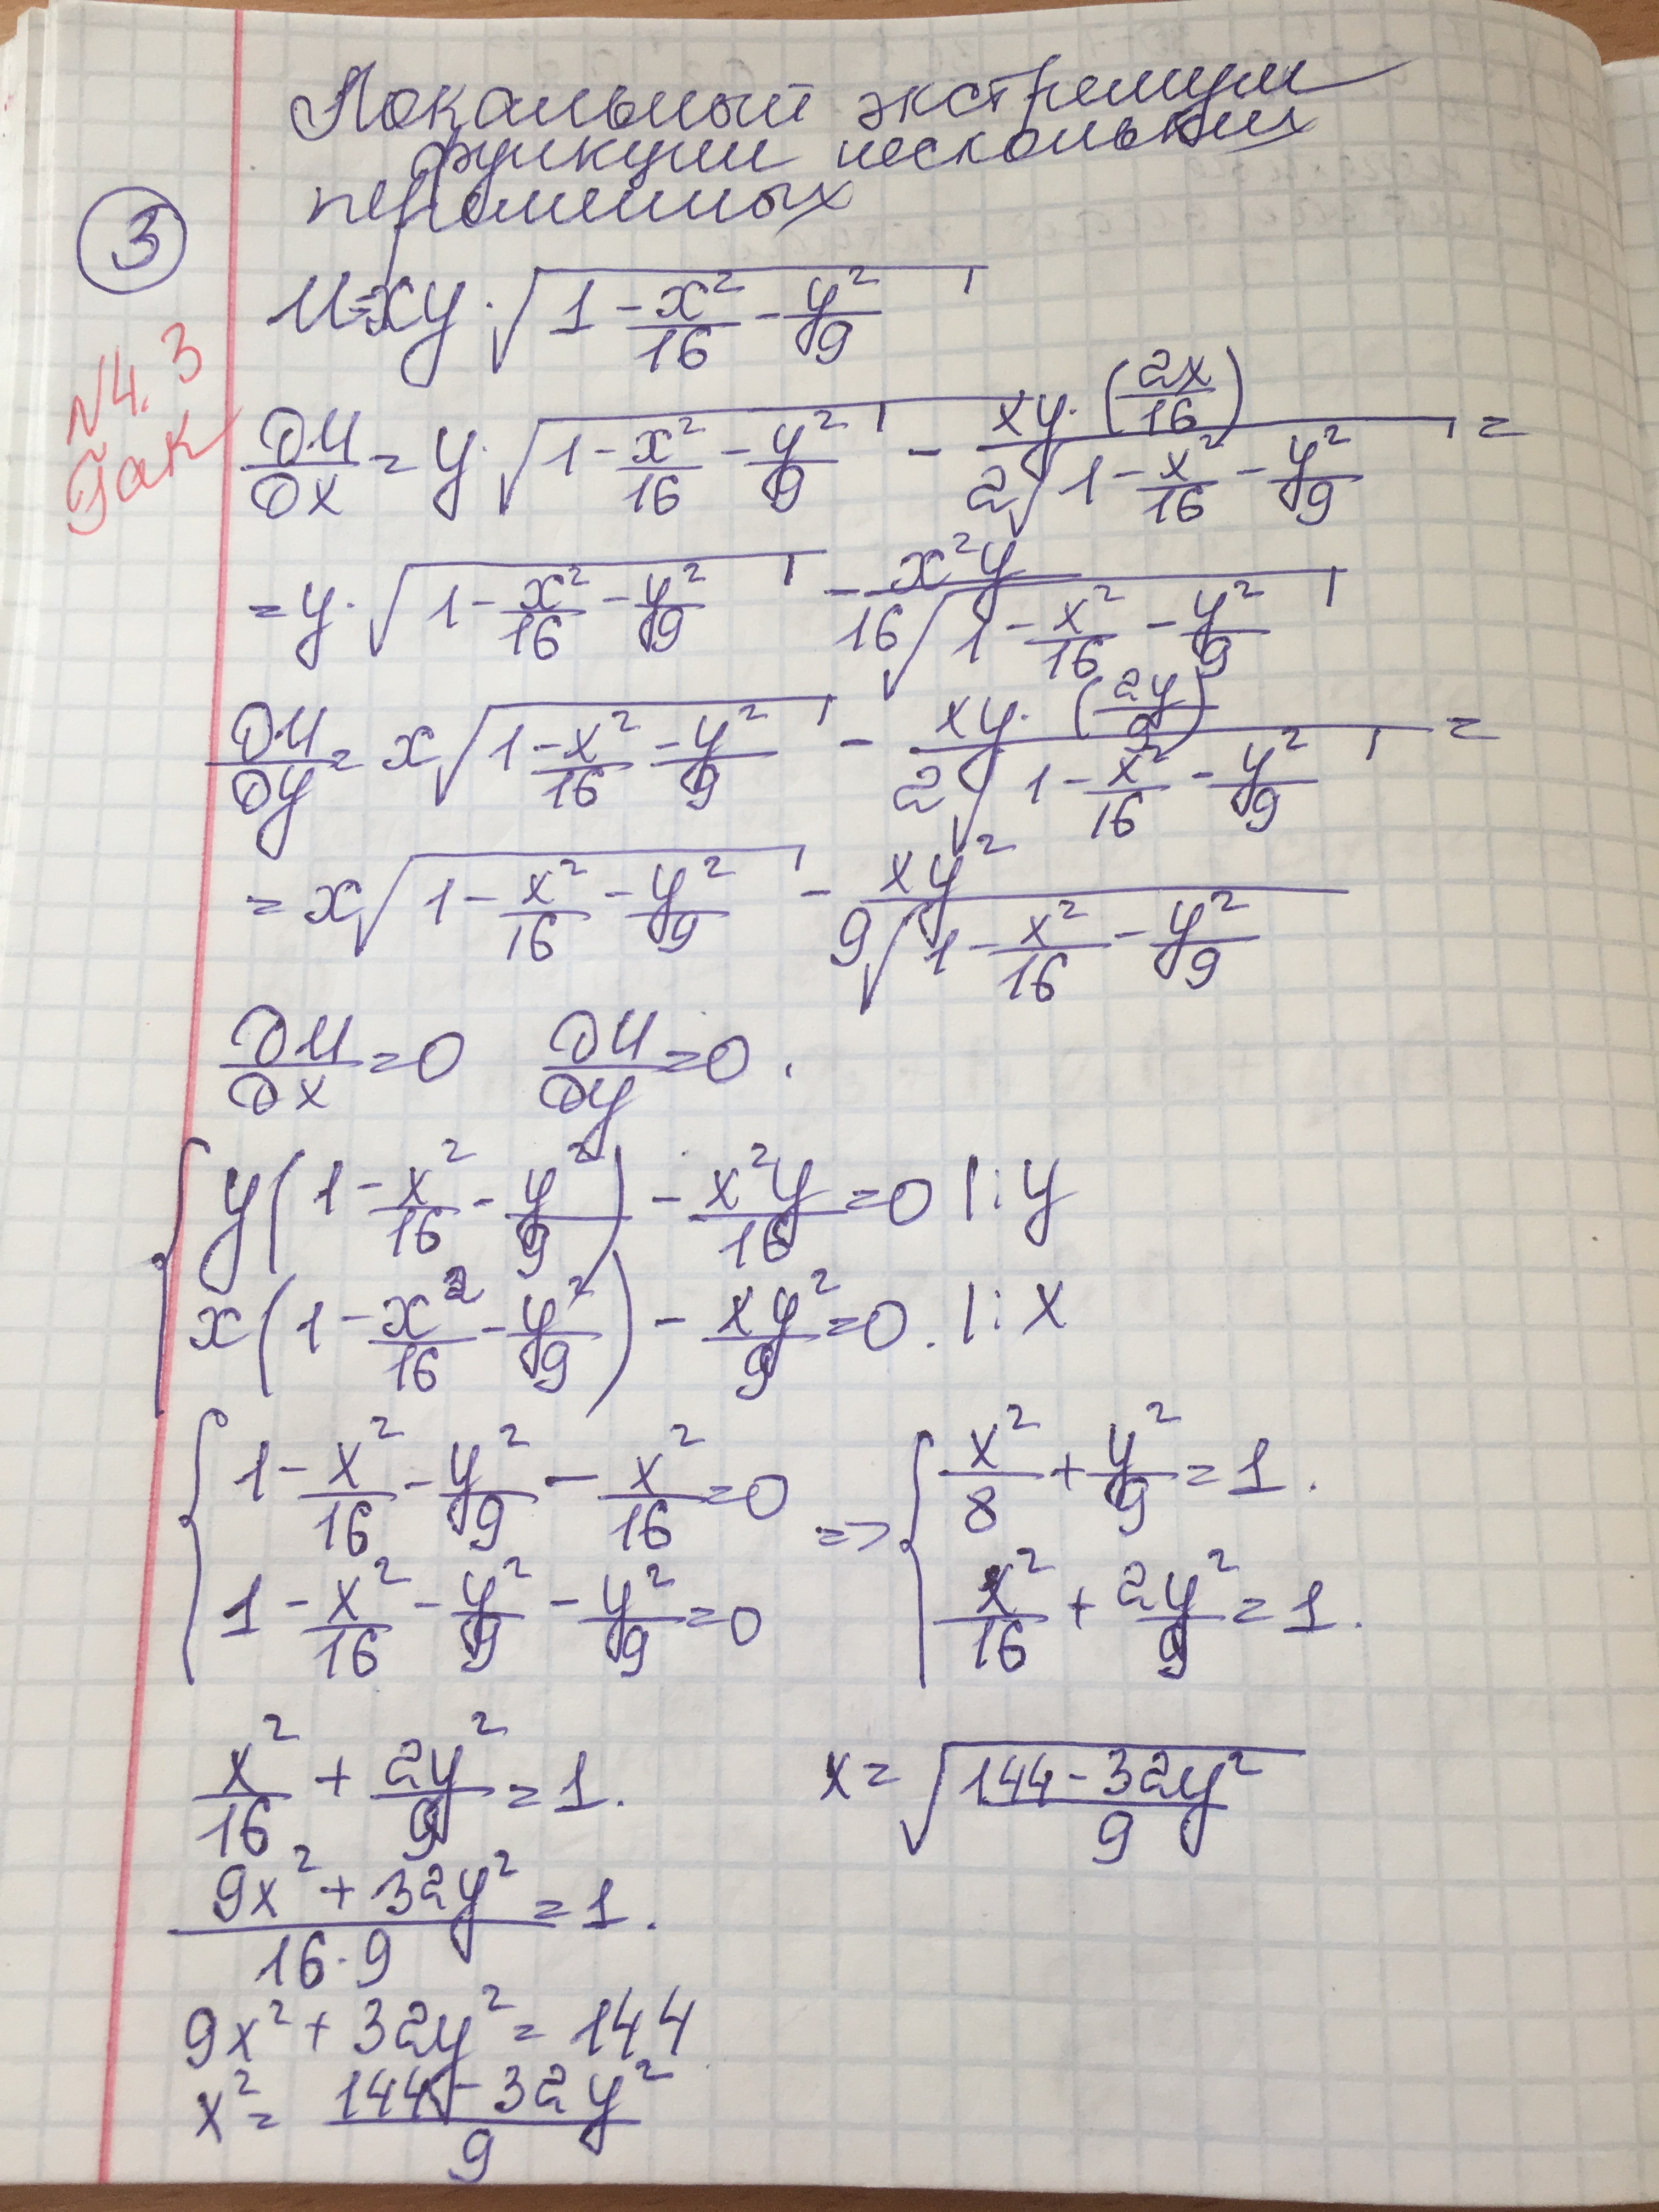 Локальный экстремум
функции нескольких
переменных
3
u=xy·√(1-x²/16-y²/9)
N4.3
Дак
∂u/∂x=y·√(1-x²/16-y²/9) - xy·(2x/16)/(2√(1-x²/16-y²/9))=
=y·√(1-x²/16-y²/9) - x²y/(16√(1-x²/16-y²/9))
∂u/∂y=x√(1-x²/16-y²/9) - xy·(2y/9)/(2√(1-x²/16-y²/9))=
=x√(1-x²/16-y²/9) - xy²/(9√(1-x²/16-y²/9))
∂u/∂x=0 ∂u/∂y=0.
{ y(1-x²/16-y²/9) - x²y/16=0 |:y
x(1-x²/16-y²/9) - xy²/9=0. |:x
{ 1-x²/16-y²/9-x²/16=0 => { x²/8+y²/9=1.
1-x²/16-y²/9-y²/9=0 x²/16+2y²/9=1.
x²/16+2y²/9=1. x=√((144-32y²)/9)
(9x²+32y²)/(16·9)=1.
9x²+32y²=144
x²=(144-32y²)/9